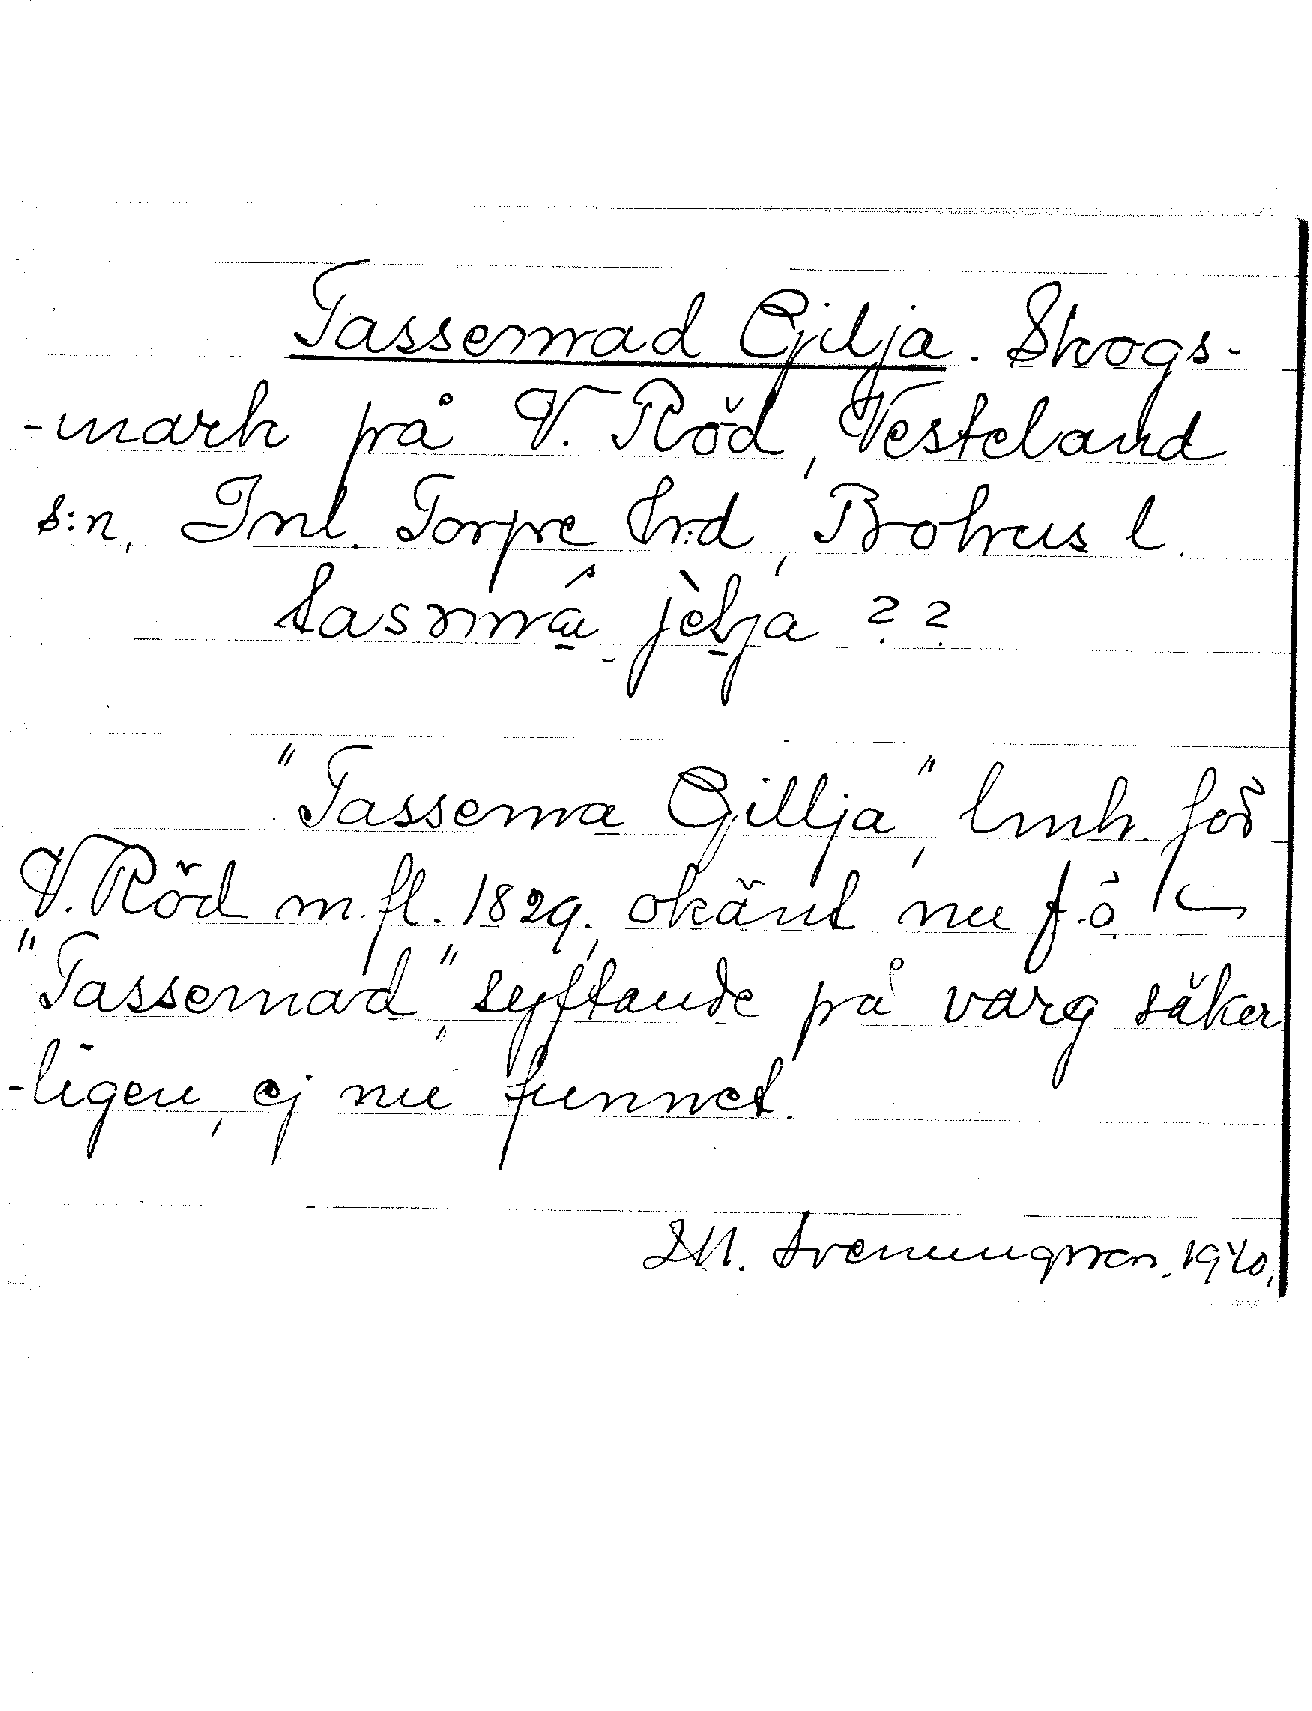 Tassemad Gilja. Skogs-
-mark på V. Röd, Vesteland
s:n, Inl. Torpe hrd, Bohus l.
"Tassema Gillja", lmk. för
V. Röd m.fl. 1829, okänt nu f.ö.
"Tassemad", syftande på varg säker
-ligen, ej nu funnet.
Svenningsson. 1940.